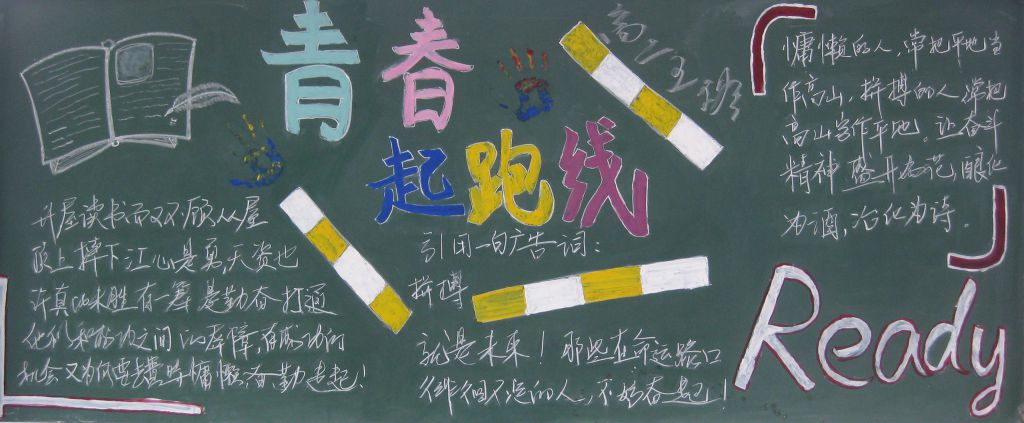 青春
起跑线
高一班
慵懒的人,常把平地当
作高山,拼搏的人常把
高山当作平地。让奋斗
精神盛开为花,酿化
为酒,冶化为诗。
升屋读书而又不顾从屋
段上摔下江心是勇天资也
许真的略胜有一筹是勤奋打通
他们和成功之间的屏障,有成功的
机会又为何要去当时慵懒 奋勤走起!
引用一句广告词:
拼搏
就是未来!那些在命运路口
徘徊不定的人,不妨奋起!
Ready